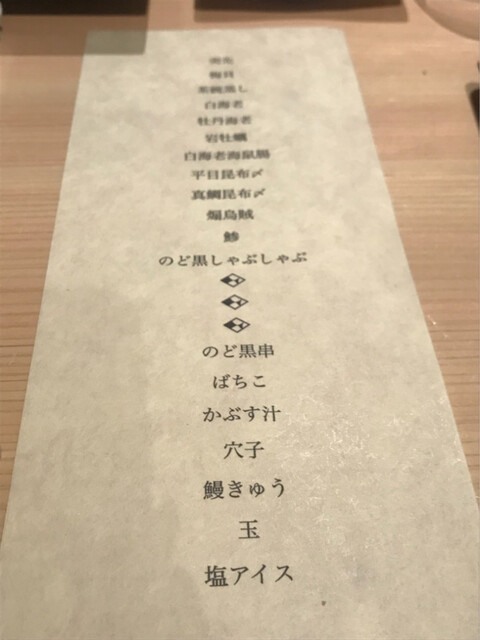 梅貝
茶碗蒸し
白海老
牡丹海老
岩牡蠣
白海老海鼠腸
平目昆布〆
真鯛昆布〆
烏賊
鯵
のど黒しゃぶしゃぶ
のど黒串
ばちこ
かぶす汁
穴子
鰻きゅう
玉
塩アイス